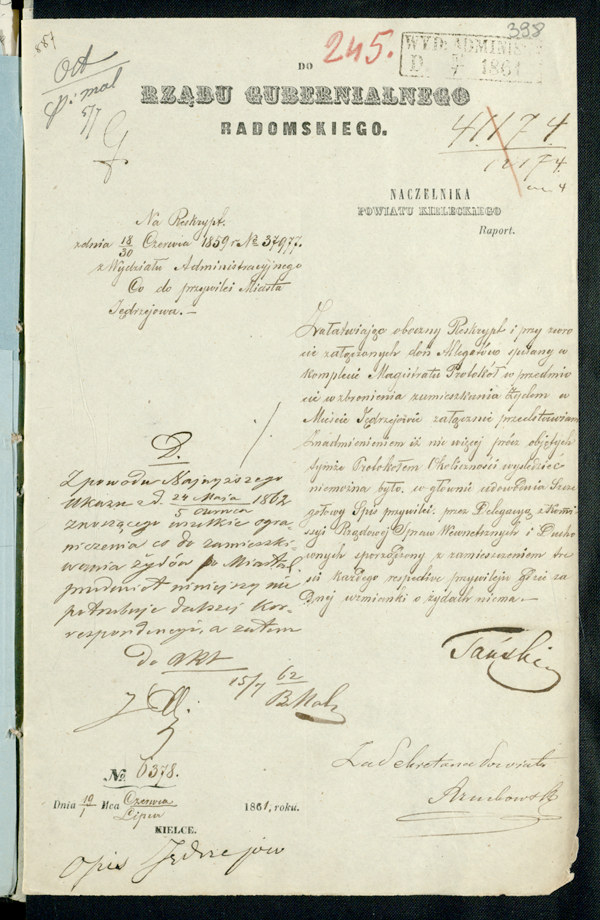 398
887
245.
WYD: ADMINIS
D. 5/7 1861
DO
RZĄDU GUBERNIALNEGO
RADOMSKIEGO.
5/7
41174.
NACZELNIKA
POWIATU KIELECKIEGO
Raport.
Na Reskrypt
z dnia 18/30 Czerwca 1859 r No 37977.
z Wydziału Administracyjnego
Co do przywilei Miasta
Jędrzejowa. —
Załatwiając oboczny Reskrypt i przy zwro
cie załączonych doń Allegatów spisany w
komplecie Magistratu Protokół w przedmio
cie wzbronienia zamieszkania Żydom w
Mieście Jędrzejowie załącznie przedstawiam
z nadmienieniem iż nic więcej prócz objętych
tymże Protokołem Okoliczności wyśledzić
niemożna było, w głównie udowodnia Szcze
gółowy Spis przywilei, przez Delegacyą z Komi
syi Rządowej Spraw Wewnętrznych i Ducho
wnych sporządzony z zamieszczeniem tre
ści każdego respective przywileju gdzie ża
dnej wzmianki o żydach niema. —
D.
Z powodu Najwyższego
Ukazu z d. 24 Maja/5 Czerwca 1862
znoszącego wszelkie ogra
niczenia co do zamieszki
wania żydów po Miastach
przedmiot niniejszy nie
potrzebuje dalszej kor-
respondencyi, a zatem
do akt
15/7 62
Tański
Za Sekretarza Powiatu
No 6378.
Dnia 19/1 Mca Czerwca/Lipca 1861, roku.
KIELCE.
Opis Jędrzejów